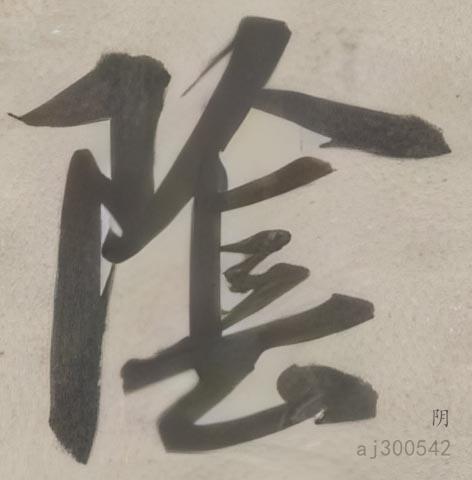 陰
阴
aj300542